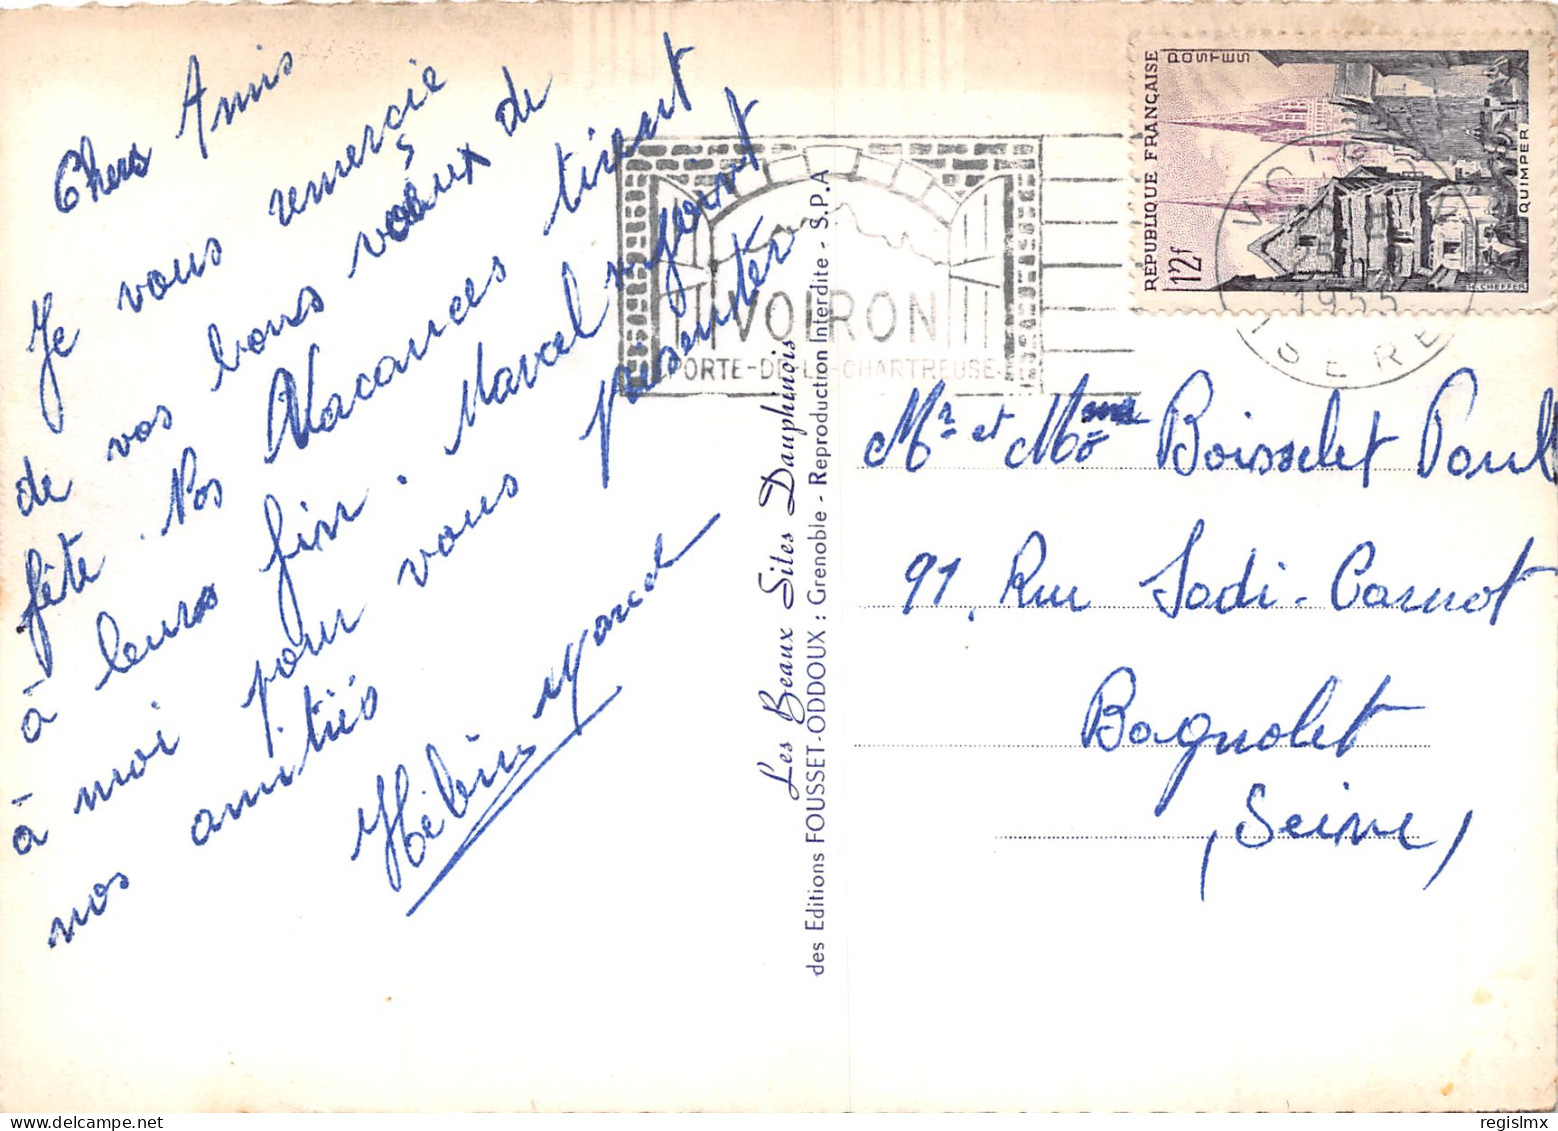 Chers Amis
Je vous remercie
de vos bons vœux de
fête. Nos Vacances tirent
à leurs fin. Marcel se joint
à moi pour vous présentér
nos amitiés
Hébin Marcel
Les Beaux Sites Dauphinois
des Editions FOUSSET-ODDOUX : Grenoble - Reproduction Interdite - S.P.A
VOIRON
PORTE-DE-LA-CHARTREUSE
RÉPUBLIQUE FRANÇAISE
POSTES
12f
QUIMPER
H. CHEFFER
VOIRON
1955
ISERE
Mr et Mme Boisselet Paul
91. Rue Sadi-Carnot
Bagnolet
(Seine)
regislmx